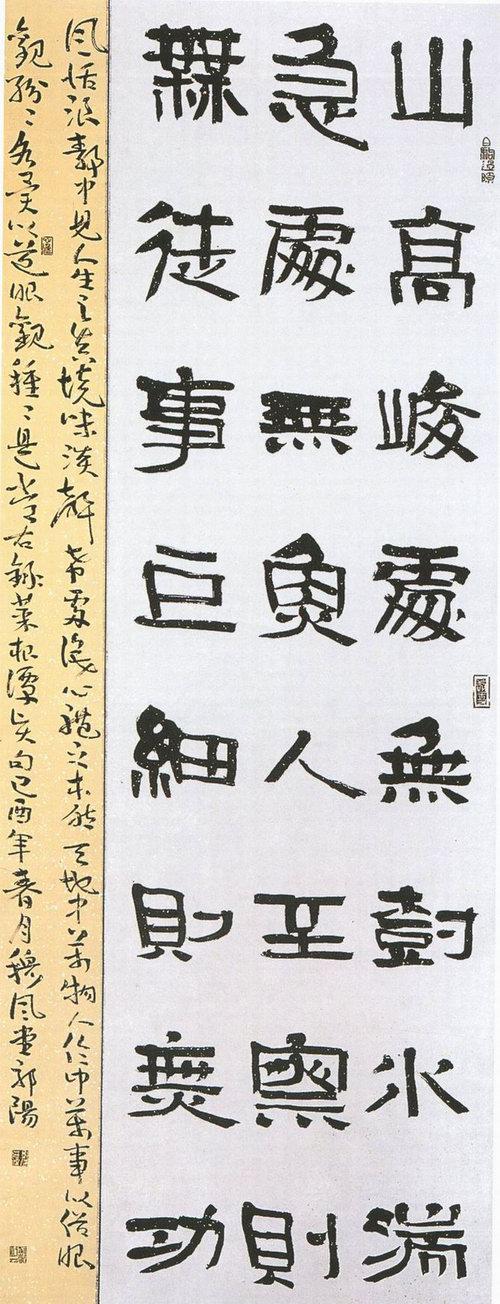 山高峻處無尌水湍
急處無魚人至察則
無徒事巨細則無功
風恬浪靜中見人生之真境味淡聲希處識心體之本然天地中萬物人倫中萬事以俗眼
觀紛〻各異以道眼觀種〻是常右錄菜根譚句己酉年春月穆風堂郭陽